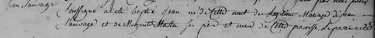 Jean Sauvage
soussigné a été baptisé jean né de cette nuit du légitime mariage de jean
Sauvage et de Marguerite Martin ses père et mère de cette paroisse le parain a été